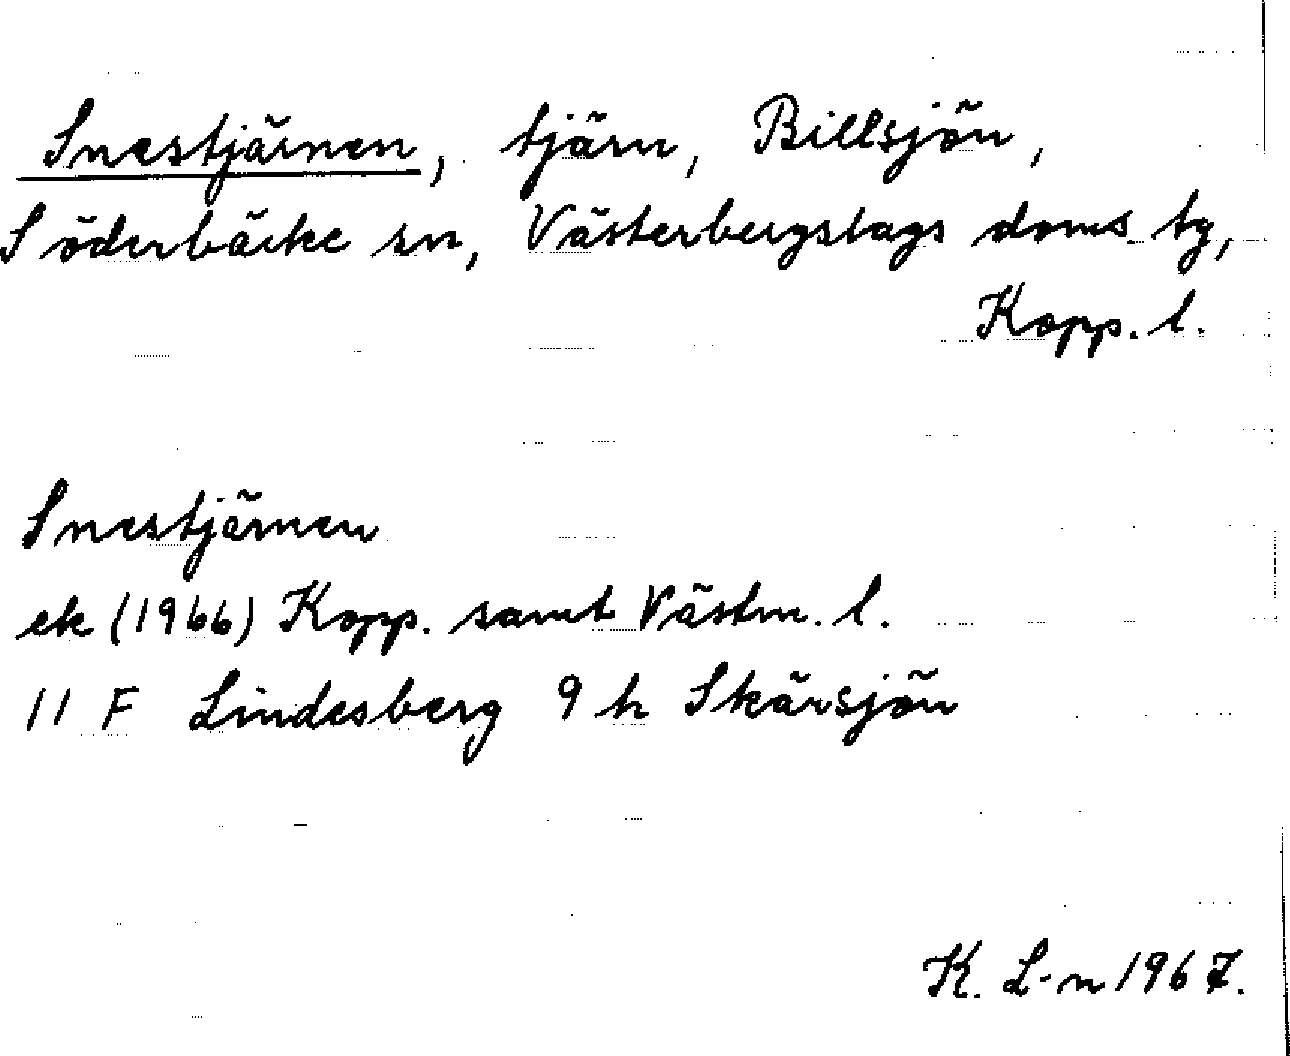 Snestjärnen, tjärn, Billsjön,
Söderbärke sn, Västerbergslags doms. tg,
Kopp. l.
Snestjärnen
ek (1966) Kopp. samt Västm. l.
11 F Lindesberg 9 h Skärsjön
K. L-n 1967.